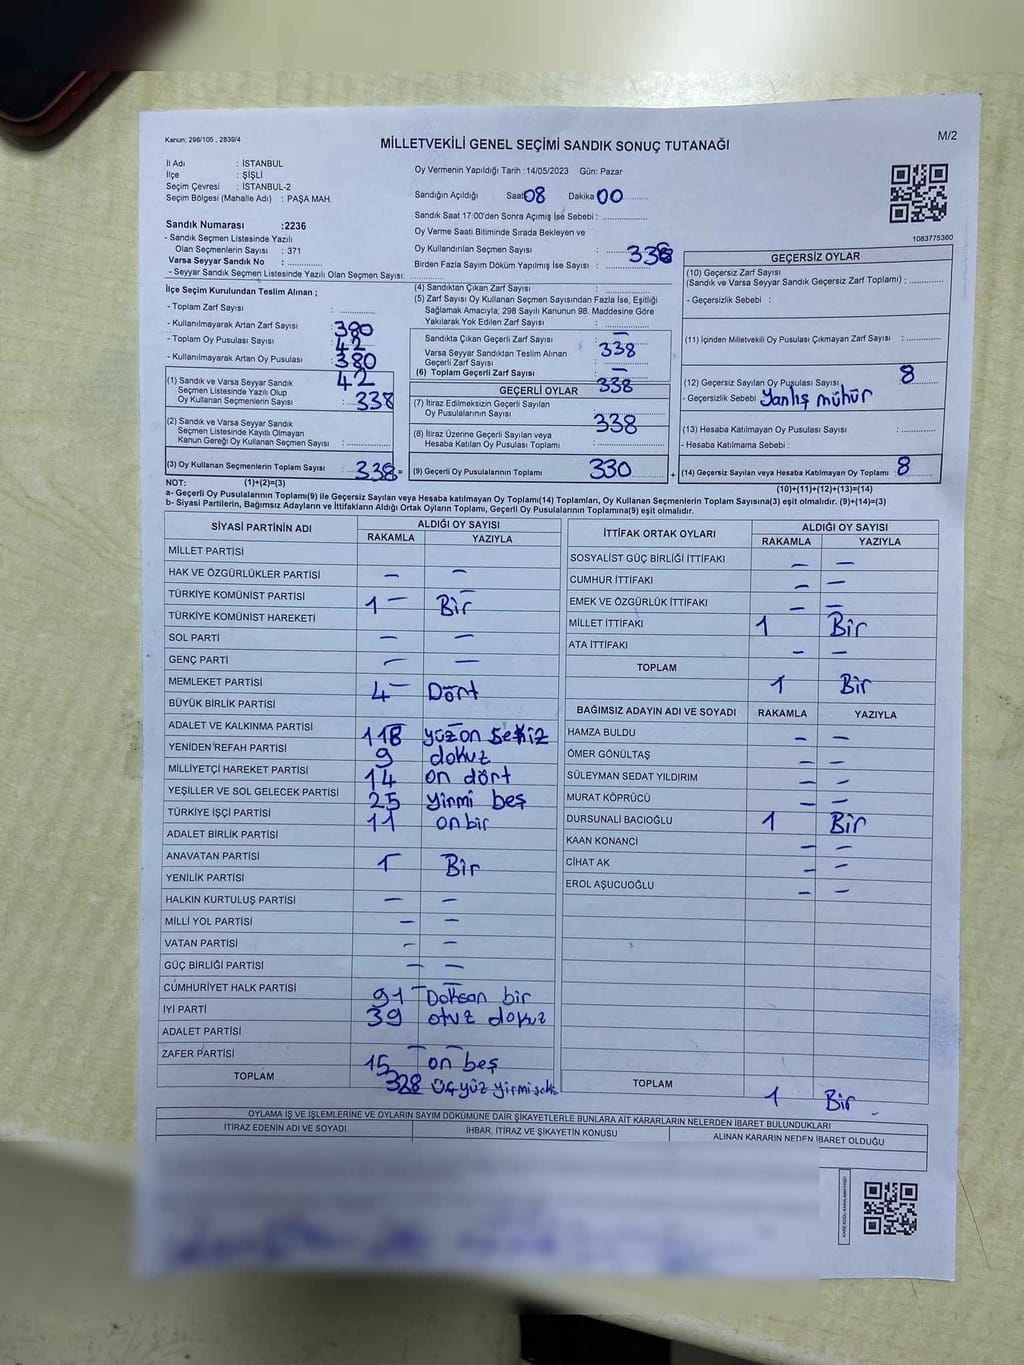 Kanun, 298/105 , 2839/4
MİLLETVEKİLİ GENEL SEÇİMİ SANDIK SONUÇ TUTANAĞI
M/2
İl Adı : İSTANBUL
İlçe : ŞİŞLİ
Seçim Çevresi : İSTANBUL-2
Seçim Bölgesi (Mahalle Adı) : PAŞA MAH.
Sandık Numarası :2236
- Sandık Seçmen Listesinde Yazılı
Olan Seçmenlerin Sayısı : 371
Varsa Seyyar Sandık No :
- Seyyar Sandık Seçmen Listesinde Yazılı Olan Seçmen Sayısı:
Oy Vermenin Yapıldığı Tarih : 14/05/2023 Gün: Pazar
Sandığın Açıldığı Saat 08 Dakika 00
Sandık Saat 17:00'den Sonra Açımış İse Sebebi :
Oy Verme Saati Bitiminde Sırada Bekleyen ve
Oy Kullandırılan Seçmen Sayısı : 338
Birden Fazla Sayım Döküm Yapılmış İse Sayısı :
1083775360
İlçe Seçim Kurulundan Teslim Alınan ;
- Toplam Zarf Sayısı :
- Kullanılmayarak Artan Zarf Sayısı : 380
- Toplam Oy Pusulası Sayısı : 42
- Kullanılmayarak Artan Oy Pusulası : 380
42
(1) Sandık ve Varsa Seyyar Sandık
Seçmen Listesinde Yazılı Olup
Oy Kullanan Seçmenlerin Sayısı : 338
(2) Sandık ve Varsa Seyyar Sandık
Seçmen Listesinde Kayıtlı Olmayan
Kanun Gereği Oy Kullanan Seçmen Sayısı :
(3) Oy Kullanan Seçmenlerin Toplam Sayısı : 338 =
(4) Sandıktan Çıkan Zarf Sayısı :
(5) Zarf Sayısı Oy Kullanan Seçmen Sayısından Fazla İse, Eşitliği
Sağlamak Amacıyla; 298 Sayılı Kanunun 98. Maddesine Göre
Yakılarak Yok Edilen Zarf Sayısı :
Sandıkta Çıkan Geçerli Zarf Sayısı : —
Varsa Seyyar Sandıktan Teslim Alınan 338
Geçerli Zarf Sayısı :
(6) Toplam Geçerli Zarf Sayısı : —
GEÇERLİ OYLAR 338
(7) İtiraz Edilmeksizin Geçerli Sayılan
Oy Pusulalarının Sayısı : 338
(8) İtiraz Üzerine Geçerli Sayılan veya
Hesaba Katılan Oy Pusulası Toplamı :
(9) Geçerli Oy Pusulalarının Toplamı 330 +
GEÇERSİZ OYLAR
(10) Geçersiz Zarf Sayısı
(Sandık ve Varsa Seyyar Sandık Geçersiz Zarf Toplamı) :
- Geçersizlik Sebebi :
(11) İçinden Milletvekili Oy Pusulası Çıkmayan Zarf Sayısı :
(12) Geçersiz Sayılan Oy Pusulası Sayısı : 8
- Geçersizlik Sebebi Yanlış mühür
(13) Hesaba Katılmayan Oy Pusulası Sayısı :
- Hesaba Katılmama Sebebi :
(14) Geçersiz Sayılan veya Hesaba Katılmayan Oy Toplamı : 8
NOT: (1)+(2)=(3)
(10)+(11)+(12)+(13)=(14)
a- Geçerli Oy Pusulalarının Toplamı(9) ile Geçersiz Sayılan veya Hesaba katılmayan Oy Toplamı(14) Toplamları, Oy Kullanan Seçmenlerin Toplam Sayısına(3) eşit olmalıdır. (9)+(14)=(3)
b- Siyasi Partilerin, Bağımsız Adayların ve İttifakların Aldığı Ortak Oyların Toplamı, Geçerli Oy Pusulalarının Toplamına(9) eşit olmalıdır.
SİYASİ PARTİNİN ADI ALDIĞI OY SAYISI
RAKAMLA YAZIYLA
MİLLET PARTİSİ
HAK VE ÖZGÜRLÜKLER PARTİSİ — —
TÜRKİYE KOMÜNİST PARTİSİ — —
TÜRKİYE KOMÜNİST HAREKETİ 1 Bir
SOL PARTİ — —
GENÇ PARTİ — —
MEMLEKET PARTİSİ 4 Dört
BÜYÜK BİRLİK PARTİSİ — —
ADALET VE KALKINMA PARTİSİ 118 yüzon sekiz
YENİDEN REFAH PARTİSİ 9 dokuz
MİLLİYETÇİ HAREKET PARTİSİ 14 on dört
YEŞİLLER VE SOL GELECEK PARTİSİ 25 yirmi beş
TÜRKİYE İŞÇİ PARTİSİ 11 onbir
ADALET BİRLİK PARTİSİ
ANAVATAN PARTİSİ 1 Bir
YENİLİK PARTİSİ
HALKIN KURTULUŞ PARTİSİ — —
MİLLİ YOL PARTİSİ — —
VATAN PARTİSİ — —
GÜÇ BİRLİĞİ PARTİSİ — —
CUMHURİYET HALK PARTİSİ 91 Doksan bir
İYİ PARTİ 39 otuz dokuz
ADALET PARTİSİ — —
ZAFER PARTİSİ 15 on beş
TOPLAM 328 üçyüz yirmi
İTTİFAK ORTAK OYLARI ALDIĞI OY SAYISI
RAKAMLA YAZIYLA
SOSYALİST GÜÇ BİRLİĞİ İTTİFAKI — —
CUMHUR İTTİFAKI — —
EMEK VE ÖZGÜRLÜK İTTİFAKI — —
MİLLET İTTİFAKI 1 Bir
ATA İTTİFAKI — —
TOPLAM 1 Bir
BAĞIMSIZ ADAYIN ADI VE SOYADI RAKAMLA YAZIYLA
HAMZA BULDU — —
ÖMER GÖNÜLTAŞ — —
SÜLEYMAN SEDAT YILDIRIM — —
MURAT KÖPRÜCÜ — —
DURSUNALİ BACIOĞLU 1 Bir
KAAN KONANCİ — —
CİHAT AK — —
EROL AŞUCUOĞLU — —
TOPLAM 1 Bir
OYLAMA İŞ VE İŞLEMLERİNE VE OYLARIN SAYIM DÖKÜMÜNE DAİR ŞİKAYETLERLE BUNLARA AİT KARARLARIN NELERDEN İBARET BULUNDUKLARI
İTİRAZ EDENİN ADI VE SOYADI İHBAR, İTİRAZ VE ŞİKAYETİN KONUSU ALINAN KARARIN NEDEN İBARET OLDUĞU